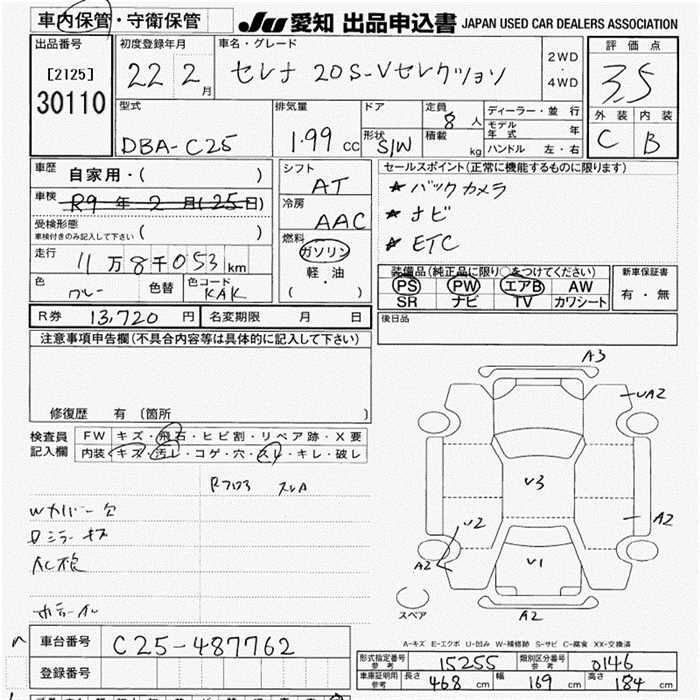 車内保管・守衛保管
JU 愛知 出品申込書 JAPAN USED CAR DEALERS ASSOCIATION
出品番号
[2125]
30110
初度登録年月
22 2月
車名・グレード
セレナ 20S-Vセレクション
2WD
・
4WD
評価点
3.5
外装 内装
C B
型式
DBA-C25
排気量
1.99 cc
ドア
形状 S/W
定員 8 人
積載 kg
ディーラー・並行
モデル年式 年
ハンドル 左・右
車歴 自家用・( )
車検 R9年2月(25日)
受検形態
車検付きのみ記入して下さい ( )
走行 11万8千053km
色 グレー 色替 色コード KAK
シフト AT
冷房 AAC
燃料
ガソリン
軽・油
( )
セールスポイント(正常に機能するものに限ります)
★バックカメラ
★ナビ
★ETC
装備品(純正品に限り○をつけてください)
PS PW エアB AW
SR ナビ TV カワシート
新車保証書
有・無
R券 13,720円 名変期限 月 日
後日品
注意事項申告欄(不具合内容等は具体的に記入して下さい)
修復歴 有(箇所 )
検査員記入欄
FW キズ・飛石・ヒビ割・リペア跡・X要
内装 キズ・汚レ・コゲ・穴・スレ・キレ・破レ
Rフロア スレA
Wカバー欠
A3
UA2
U3
A2
U2
A2
U1
A2
スペア
A-キズ E-エクボ U-凹み W-補修跡 S-サビ C-腐食 XX-交換済
車台番号 C25-487762
登録番号
形式指定番号 参考 15255 類別区分番号 参考 0146
車庫証明用 参考 長さ 468 cm 幅 169 cm 高さ 184 cm